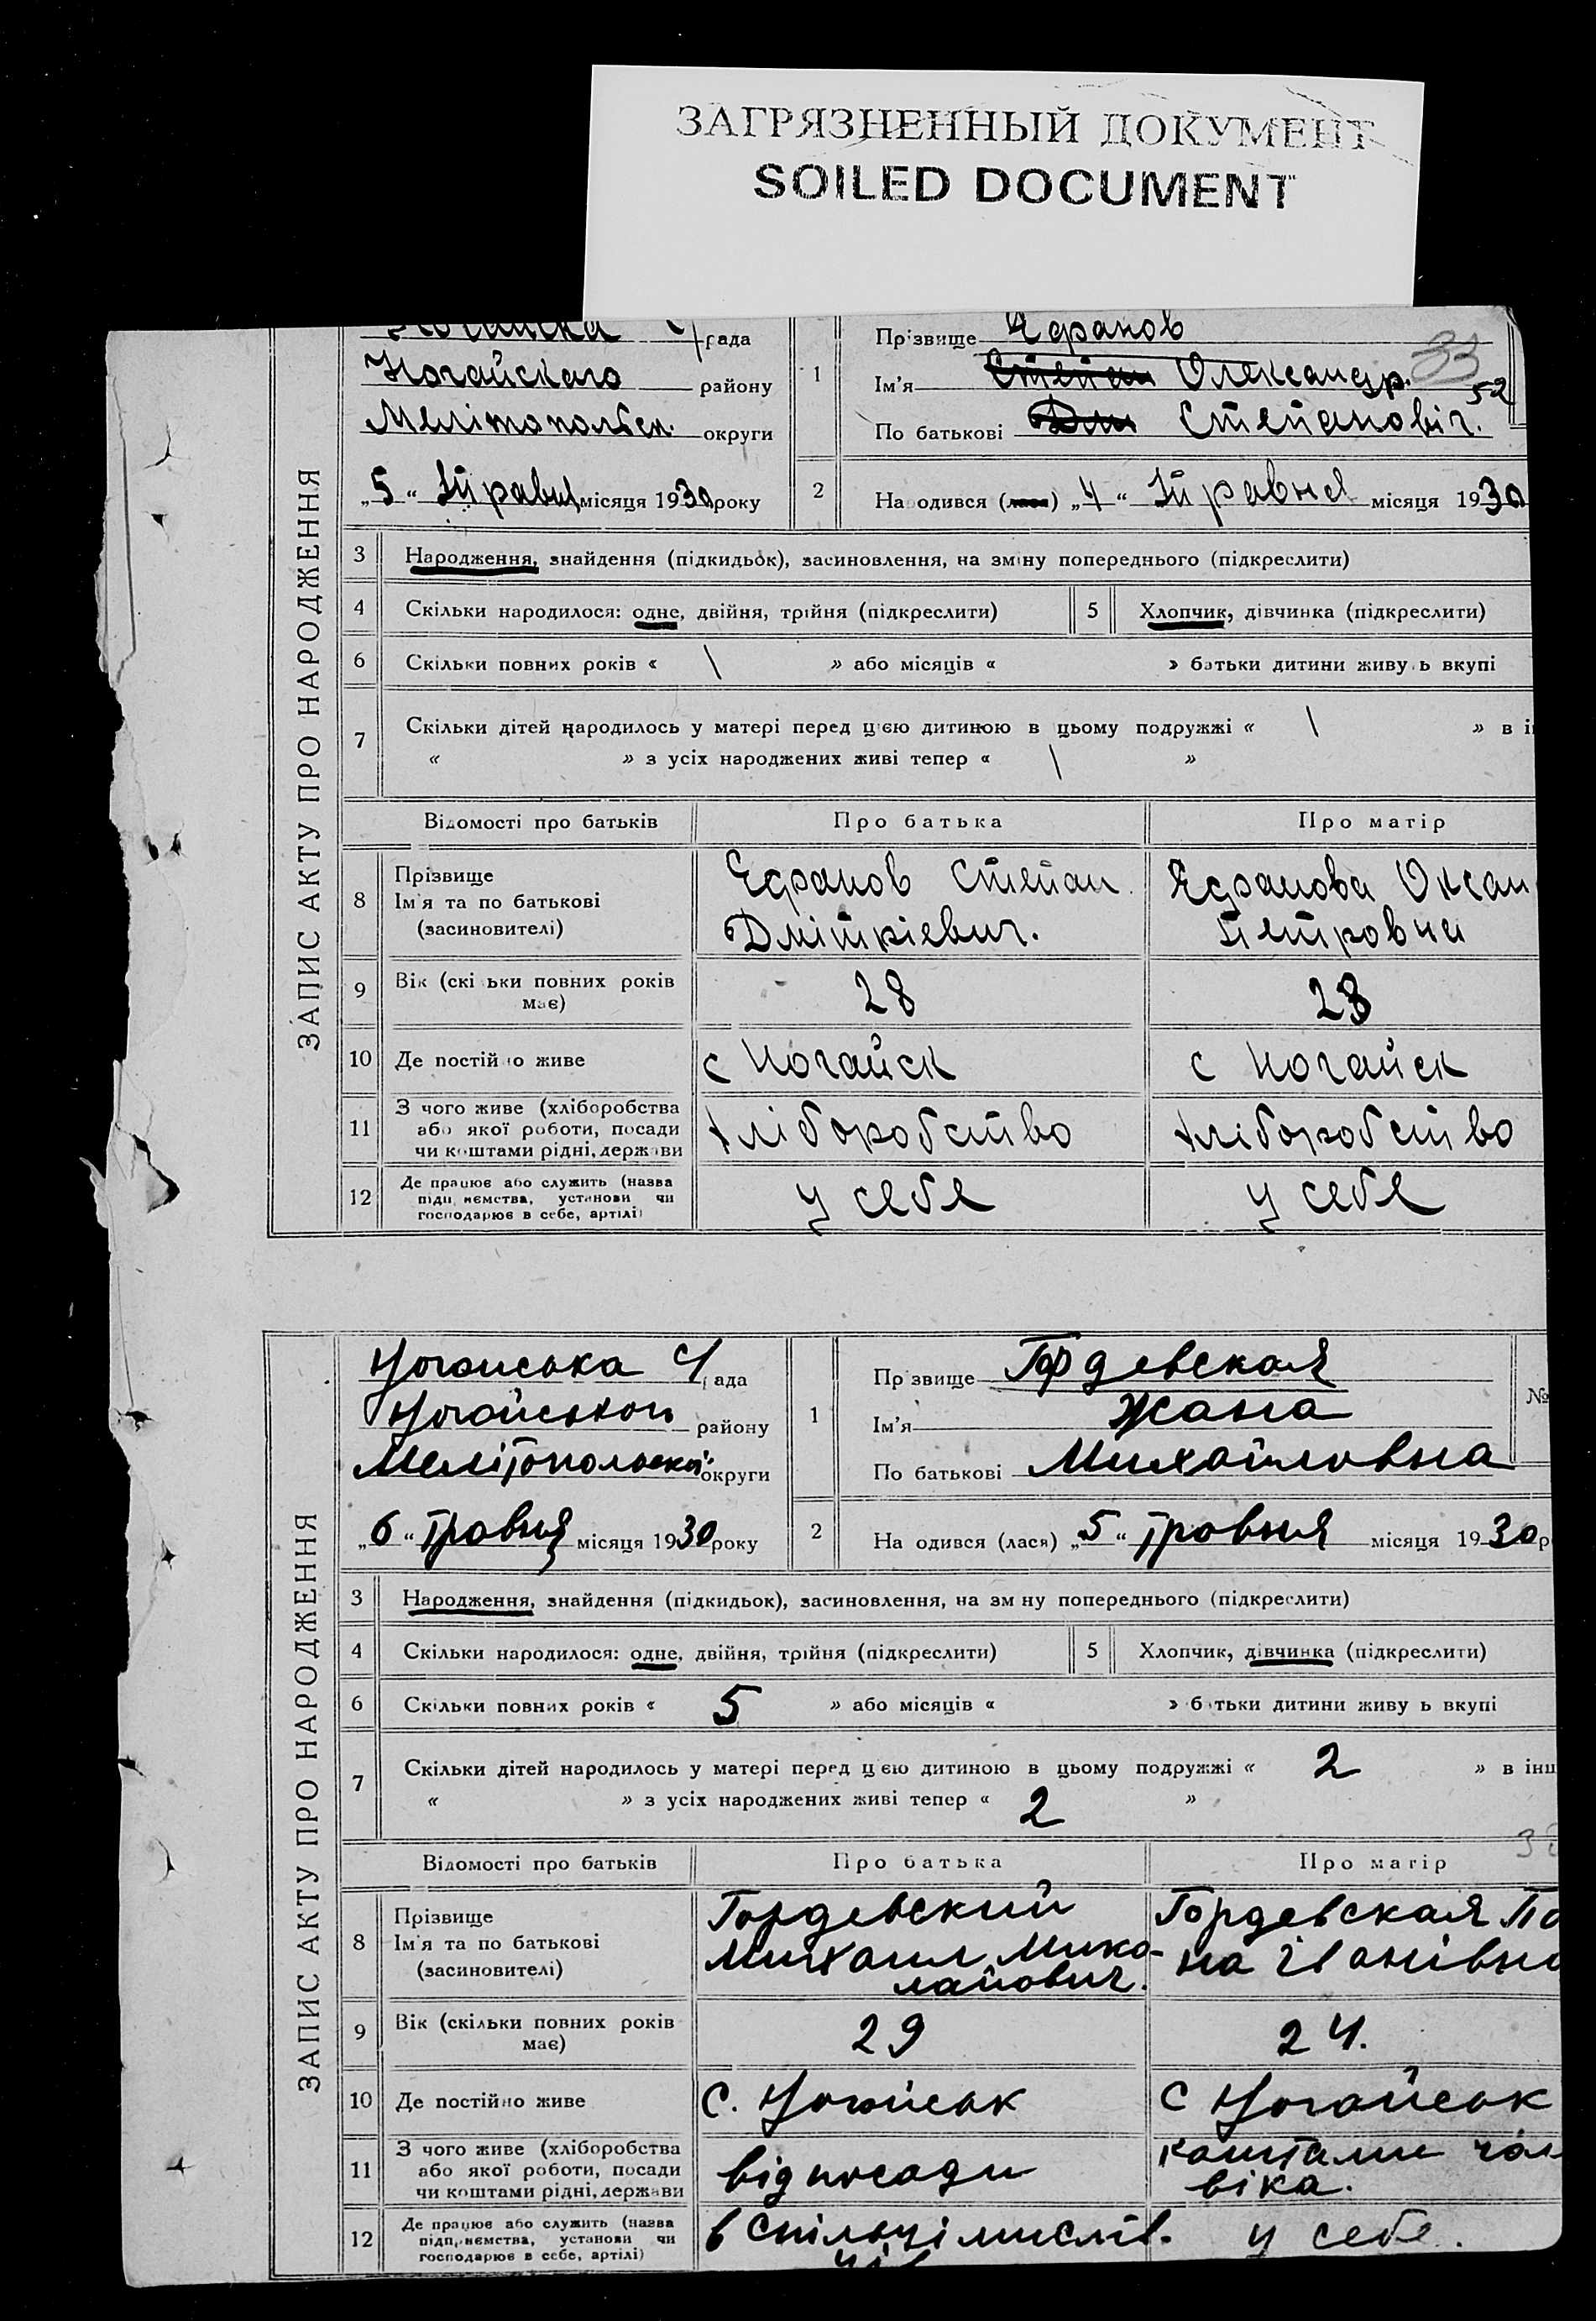 ЗАГРЯЗНЕННЫЙ ДОКУМЕНТ
SOILED DOCUMENT
ЗАПИС АКТУ ПРО НАРОДЖЕННЯ
рада
Ногайскаго району
Мелітопольск. округи
„5“ Травня місяця 1930 року
1
Прізвище Єфранов
33
Ім'я Степан Олександр.
52
По батькові Дми Степановіч.
2
Народився (лася) „4“ Травня місяця 1930
3 Народження, знайдення (підкидьок), засиновлення, на зміну попереднього (підкреслити)
4 Скільки народилося: одне, двійня, трійня (підкреслити) 5 Хлопчик, дівчинка (підкреслити)
6 Скільки повних років « \ » або місяців « » батьки дитини живуть вкупі
7 Скільки дітей народилось у матері перед цією дитиною в цьому подружжі « \ » в і
« » з усіх народжених живі тепер « \ »
Відомості про батьків Про батька Про матір
8 Прізвище
Ім'я та по батькові
(засиновителі)
Єфранов Степан
Дмітріевич.
Єфранова Оксан
Петровна
9 Вік (скільки повних років має) 28 23
10 Де постійно живе с Ногайск с Ногайск
11 З чого живе (хліборобства
або якої роботи, посади
чи коштами рідні, держави
хліборобство хліборобство
12 Де працює або служить (назва
підприємства, установи чи
господарює в себе, артілі)
у себя у себя
ЗАПИС АКТУ ПРО НАРОДЖЕННЯ
Ногайська С/рада
Ногайського району
Мелітопольської округи
„6“ Травня місяця 1930 року
1
Прізвище Гордевская
Ім'я Жана
№
По батькові Михайловна
2
Народився (лася) „5“ травня місяця 1930 р
3 Народження, знайдення (підкидьок), засиновлення, на зміну попереднього (підкреслити)
4 Скільки народилося: одне, двійня, трійня (підкреслити) 5 Хлопчик, дівчинка (підкреслити)
6 Скільки повних років « 5 » або місяців « » батьки дитини живуть вкупі
7 Скільки дітей народилось у матері перед цією дитиною в цьому подружжі « 2 » в інш
« » з усіх народжених живі тепер « 2 »
Відомості про батьків Про батька Про матір
8 Прізвище
Ім'я та по батькові
(засиновителі)
Гордевский
Михаил Мико-
лайович.
Гордевская
на Іванівна
9 Вік (скільки повних років має) 29 24.
10 Де постійно живе С. Ногайськ С Ногайськ
11 З чого живе (хліборобства
або якої роботи, посади
чи коштами рідні, держави
від посади
коштами чол
віка.
12 Де працює або служить (назва
підприємства, установи чи
господарює в себе, артілі)
в Спільці
у себе.